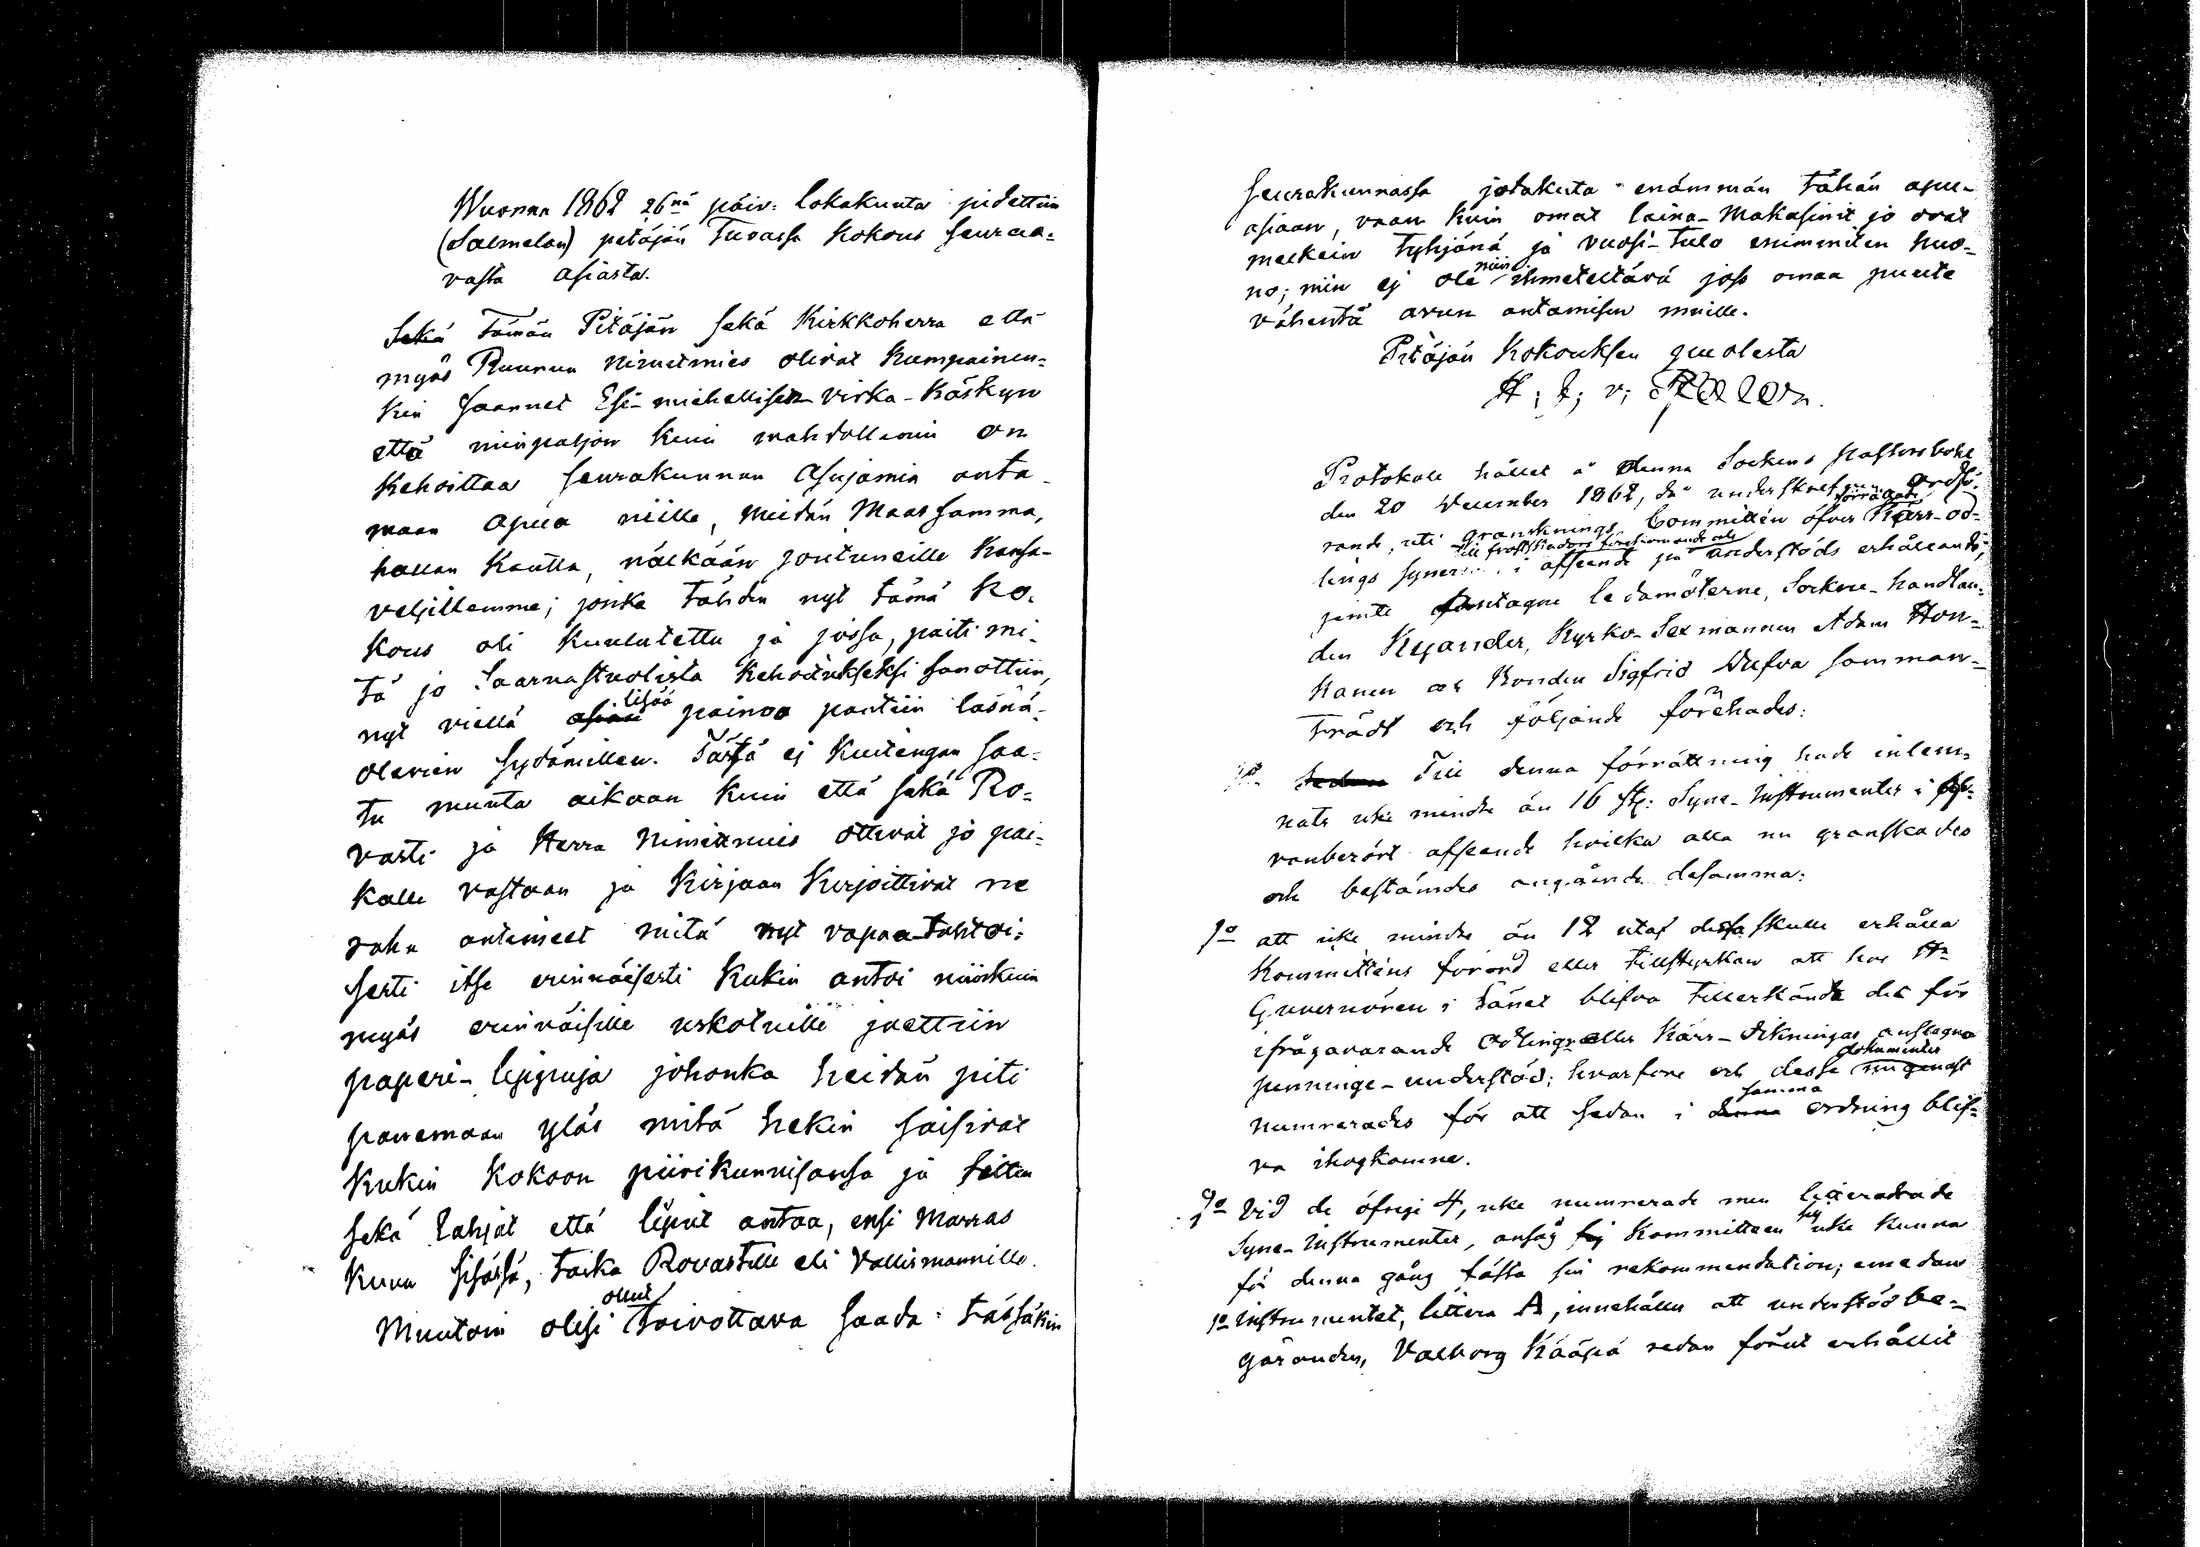 Wuonna 1862 26nä päiv: lokakuuta pidettiin
(Salmelan) petäjän Tuvassa Kokous seuraa-
vasta asiasta.
Sekä tämän Pitäjän sekä Kirkkoherra että
myös Ruunun Nimetmies olivat Kumpainen-
kin saannet Esi-miehellisen virka-Käskyn
että niinpaljon kuin mahdollinen on
Kehoittaa seurakunnan Asujamia anta-
maan apua niille, meidän Maassamma,
hallan kautta, nälkään joutuneille Kansa-
veljillemme; jonka tähden nyt tämä Ko-
kous oli Kuulutettu ja jossa, paiti mi-
tä jo Saarnastuolista Kehoitukseksi sanottiin,
nyt viellä asian lisää painoa pantiin läsnä-
olevien sydämillen. Tästä ej Kuitengan saa-
tu muuta aikaan kuin että sekä Ro-
vasti ja Herra Nimitmies ottivat jo pai-
kalle vastaan ja Kirjaan Kirjoittivat ne
raha antimet mitä nyt vapaa-tahtoi-
sesti itse erinnäisesti kukin antoi niinkuin
myös erinnäisille uskotuille jaettiin
paperi-lippuja johonka heidän piti
panemaan ylös mitä hekin saisivat
kukin kokoon piirikunnisansa ja sitten
sekä lahjat että liput antaa, ensi Marras
kuun sisässä, taika Rovastille eli Vallismannille.
Muutoin olisi ollut toivottava saada tässäkin
seurakunnassa jotakuta enämmän tähän apu-
asiaan, vaan kuin omat laina-Makasinit jo ovat
melkein tyhjänä ja vuosi-tulo enimmiten huo-
no; niin ej ole niin ihmeteltävä joss omaa puute
vähentä avun antamisen muille.
Pitäjän Kokouksen puolesta
Protokoll hållet å denna Sockens Pastorsbohl
den 20 December 1862, då undertecknad Ordfö-
rande, uti gransknings Committén öfver förrättade Kärr-od-
lings Syner i afseende på understöds erhållande,
till frostskadors förekommande och
jemte antagne ledamöterne, Sockne-handlan-
den Kyander, Kyrko-Sexmannen Adam Hon-
kanen och Bonden Sigfrid Hufva samman-
trädt och följande förehades:
Sedan Till denna förrättning hade inlem-
nats icke mindre än 16 st: Syne-Instrumenter i of-
vanberört afseende hvilka alla nu granskades
och bestämdes angående desamma:
1o att icke mindre än 12 utaf dessa skulle erhålla
Kommitténs förord eller tillstyrkan att hos Hr
Guvernören i Länet blifva tillerkände det för
ifrågavarande Odlings eller Kärr-dikningar anslagna
penninge-understöd; hvarföre och desse dokumenter nu genast
numrerades för att sedan i denna samma ordning blif-
va ihogkomne.
2o Vid de öfrige 4, icke numrerade men littererade
Syne-Instrumenter, ansåg sig Kommitteen sig icke kunna
för denna gång fästa sin rekommendation; emedan
1o Instrumentet, littera A, innehåller att understöd be-
gäranden, Valborg Kääpä redan förut erhållit